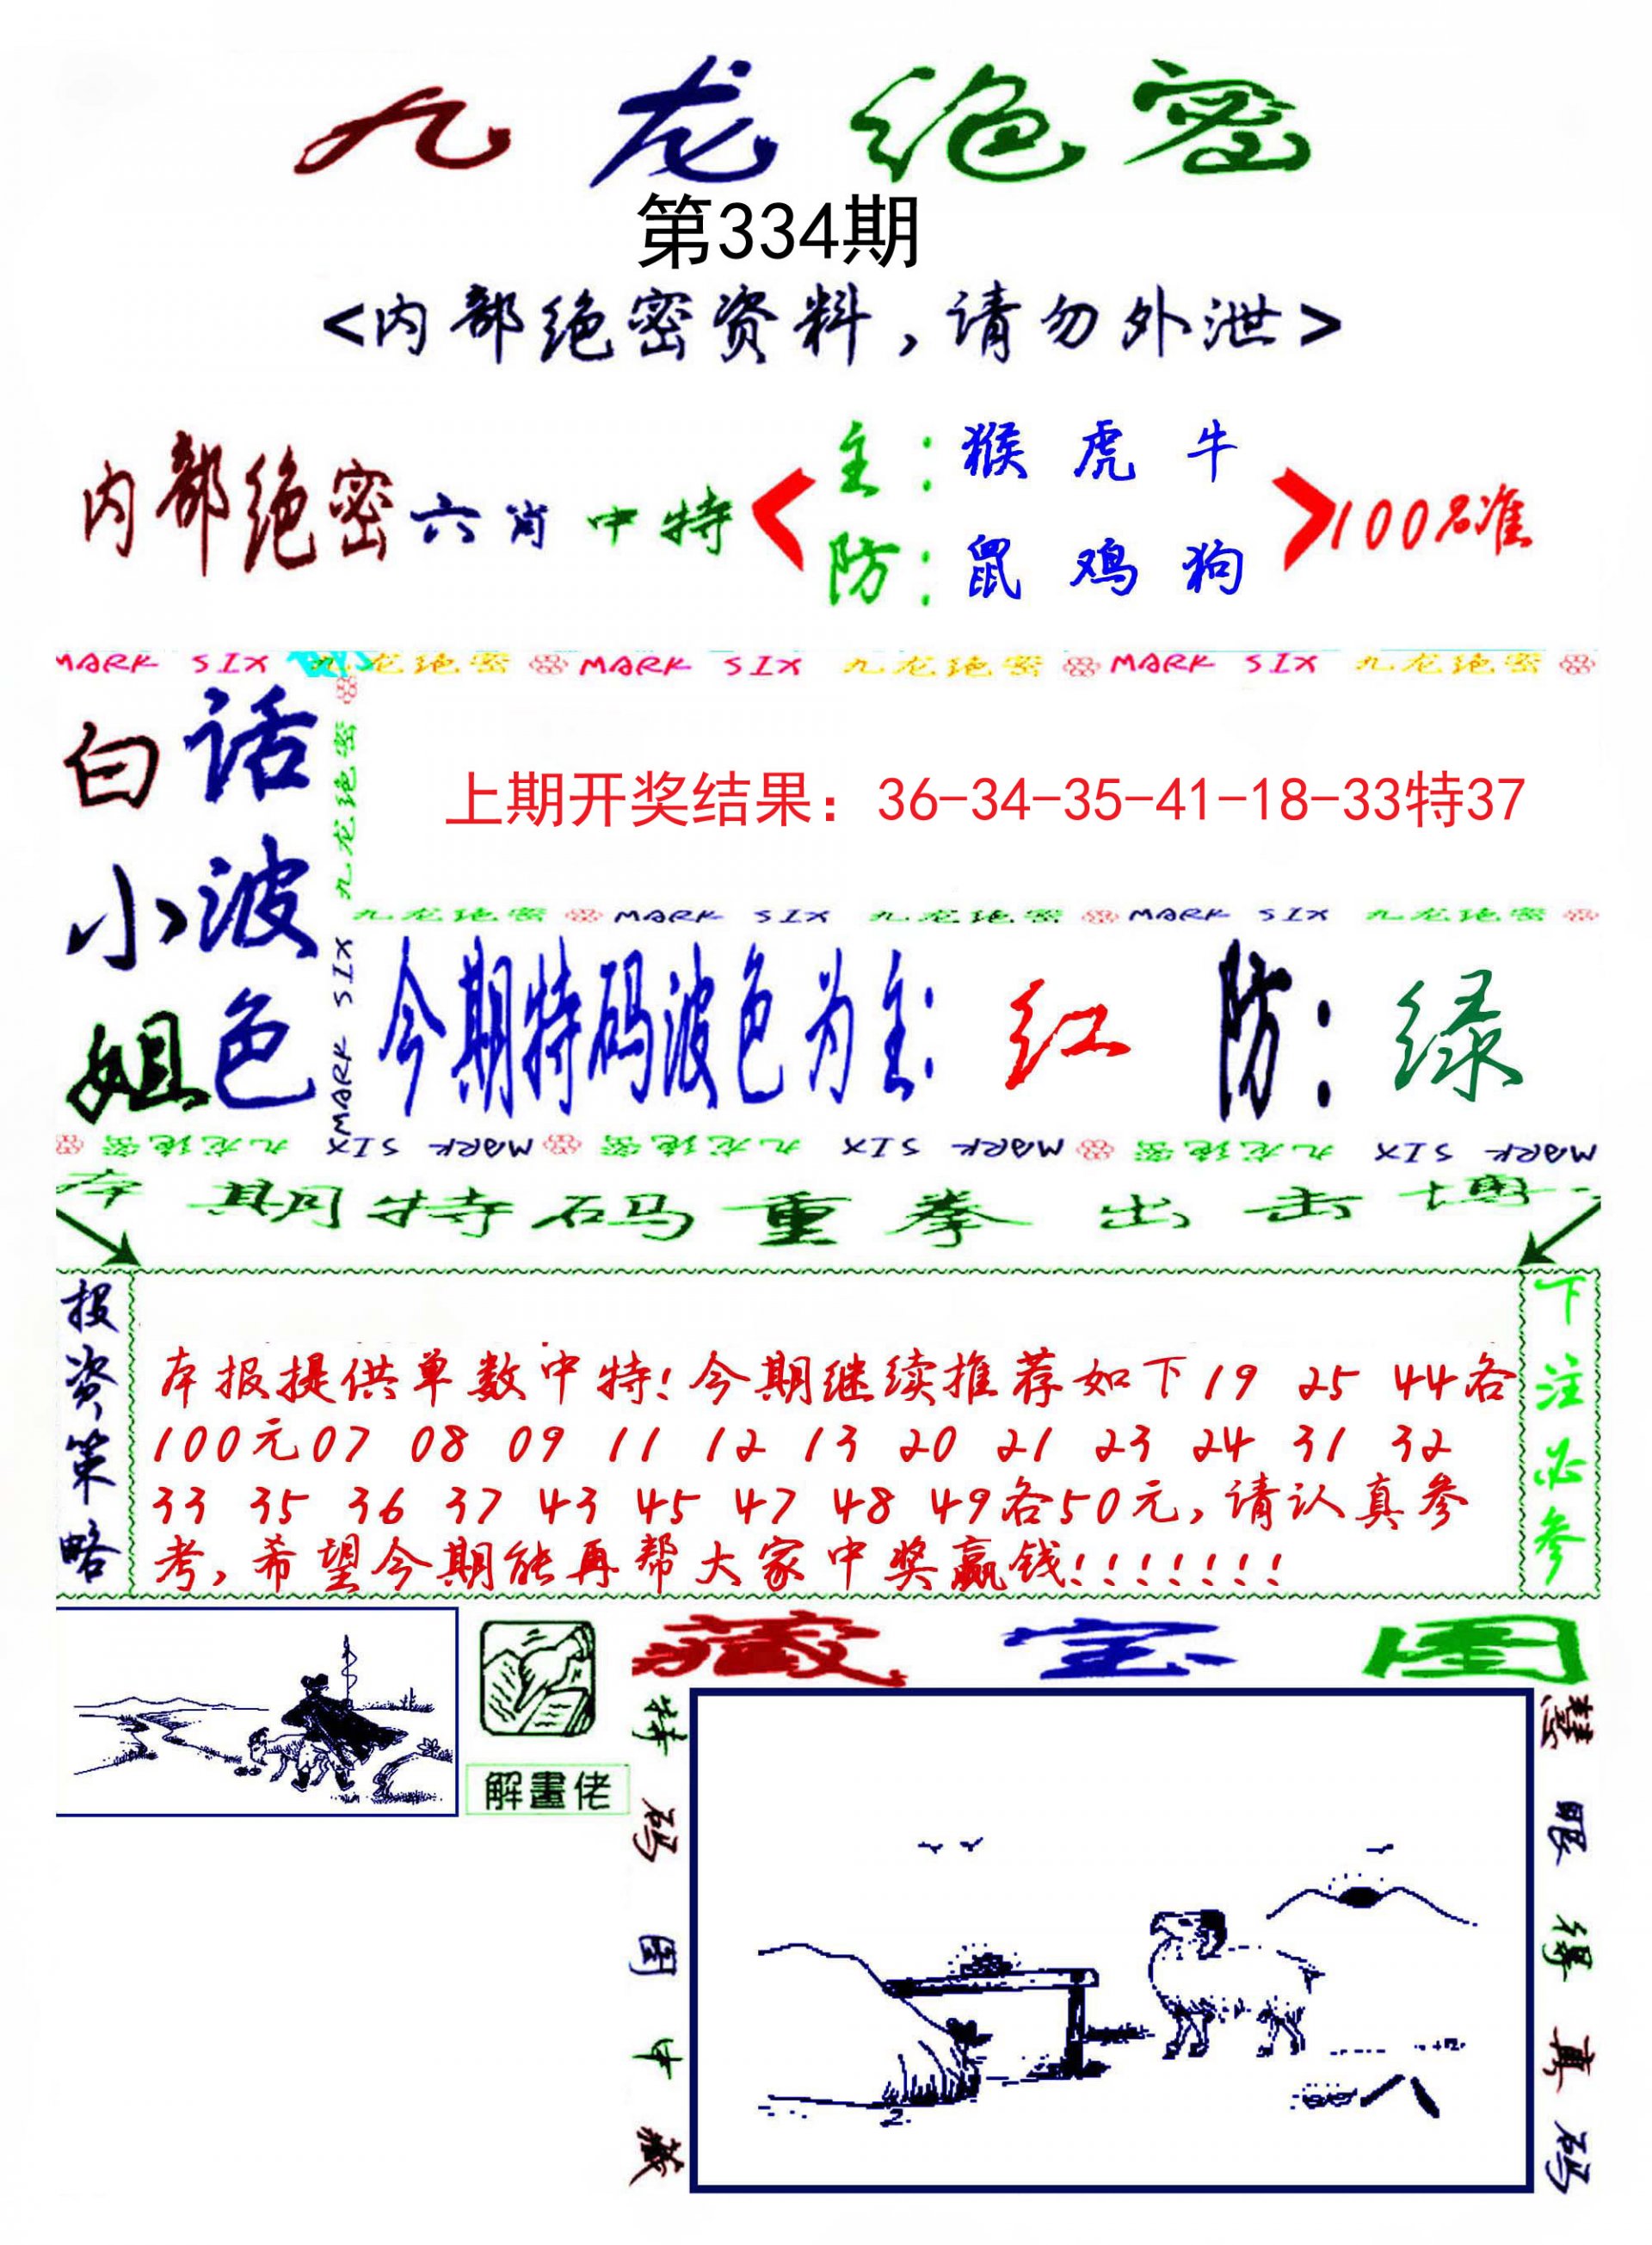 九龙绝密
第334期
<内部绝密资料，请勿外泄>
内部绝密六肖中特
主：猴 虎 牛
防：鼠 鸡 狗
100%准
MARK SIX 九龙绝密 MARK SIX 九龙绝密 MARK SIX 九龙绝密
白话
小波
姐色
九龙绝密
MARK SIX
上期开奖结果：36-34-35-41-18-33特37
九龙绝密 MARK SIX 九龙绝密 MARK SIX 九龙绝密
今期特码波色为主：红 防：绿
九龙绝密 MARK SIX 九龙绝密 MARK SIX 九龙绝密 MARK SIX
本期特码重拳出击博
投资策略
本报提供单数中特!今期继续推荐如下19 25 44各
100元07 08 09 11 12 13 20 21 23 24 31 32
33 35 36 37 43 45 47 48 49各50元,请认真参
考,希望今期能再帮大家中奖赢钱!!!!!!!
下注必参
解畫佬
藏宝图
特码图中藏
慧眼得真码